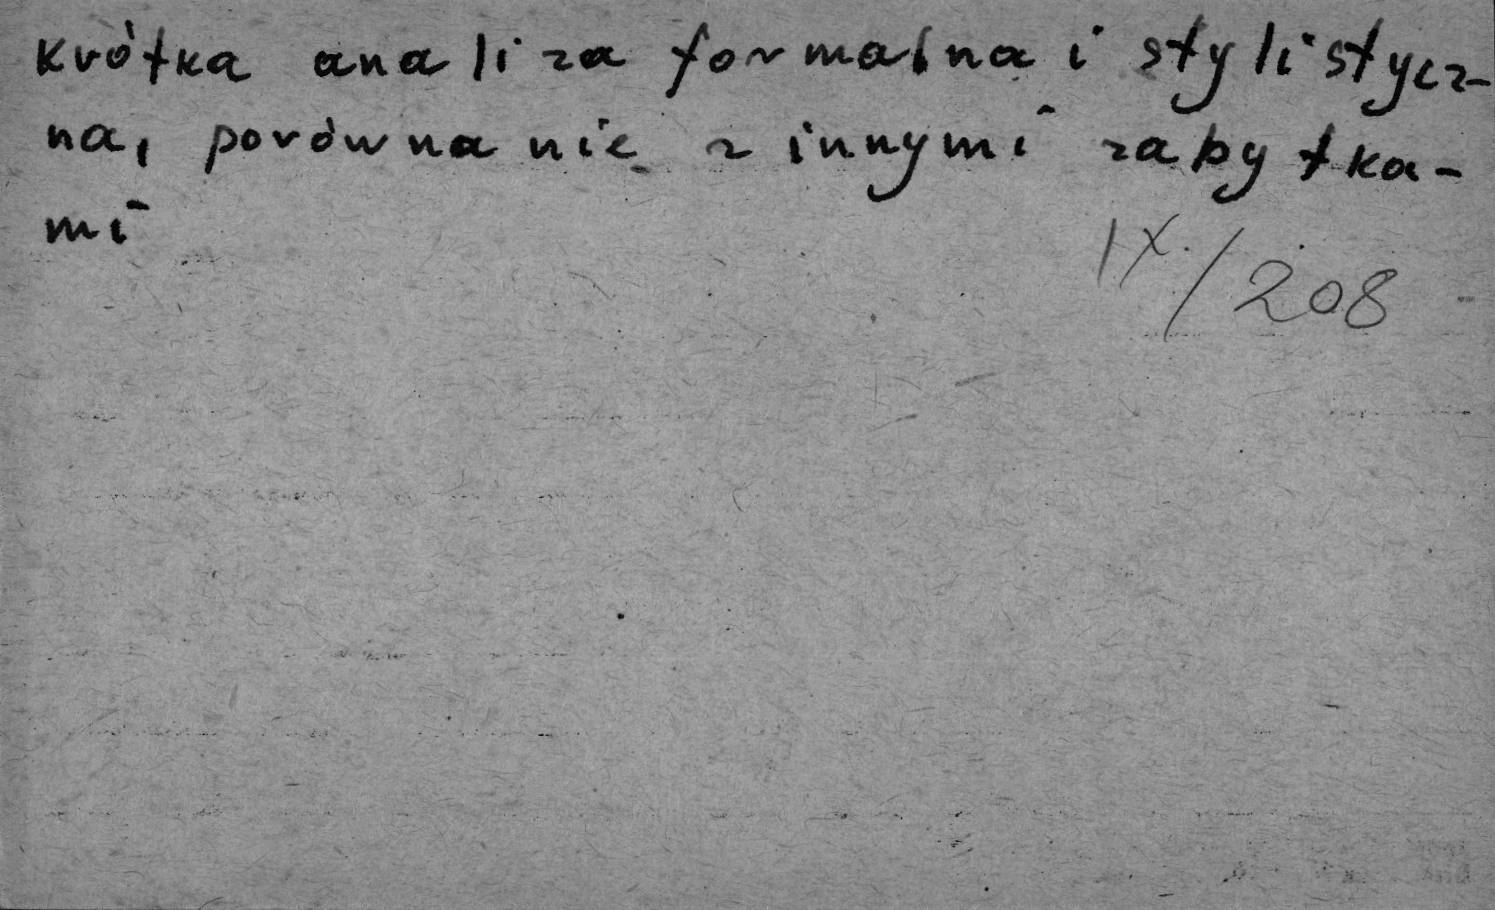 krótka analiza formalna i stylistycz-
na, porównanie z innymi zabytka-
mi
IX./208